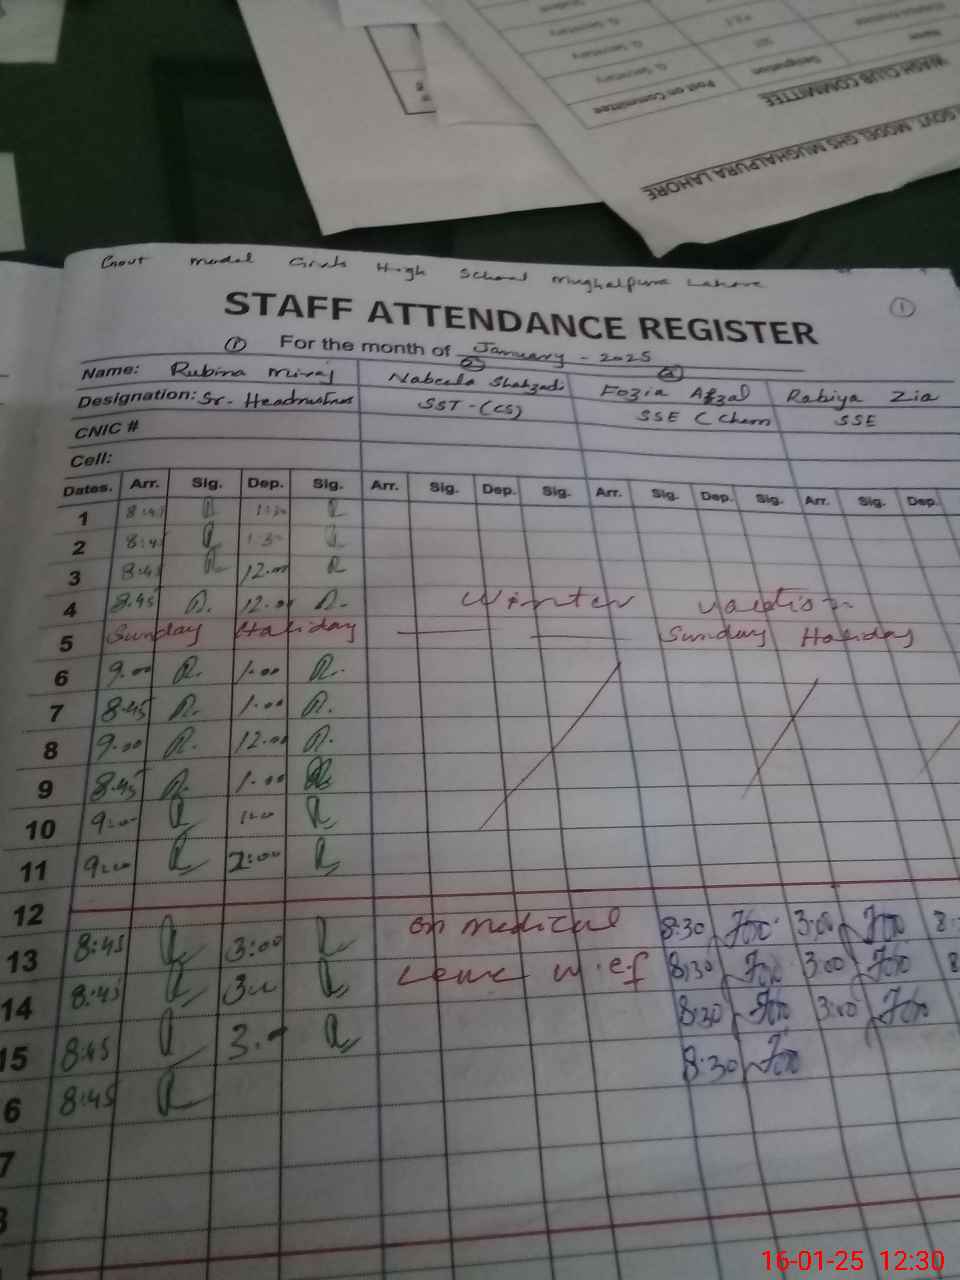 GOVT. MODEL GHS MUGHALPURA LAHORE
WASH CLUB COMMITTEE
Name Designation Post on Committee
G. Secretary
G. Secretary
Govt Model Girls High School Mughalpura Lahore
1
STAFF ATTENDANCE REGISTER
1 For the month of January - 2025
Name: Rubina Miraj Nabeela Shahzadi Fozia Afzal Rabiya Zia
Designation: Sr. Headmistress SST-(CS) SSE (Chem SSE
CNIC #
Cell:
Dates. Arr. Sig. Dep. Sig. Arr. Sig. Dep. Sig. Arr. Sig. Dep. Sig. Arr. Sig. Dep.
1 8:45 1:30
2 8:45 1:30
3 8:45 12.00
4 8.45 R. 12.00 R. Winter vacation
5 Sunday Holiday Sunday Holiday
6 9.00 R. 1.00 R.
7 8.45 R. 1.00 R.
8 9.00 R. 12.00 R.
9 8.45 R. 1.00
10 9:00 1:00
11 9:00 2:00
12
13 8:45 3:00 on medical 8:30 3:00 8:
14 8:45 3:00 Leave w.e.f 8:30 3:00 8
15 8:45 3. 8:30 3:00
6 8:45 8:30
7
16-01-25 12:30